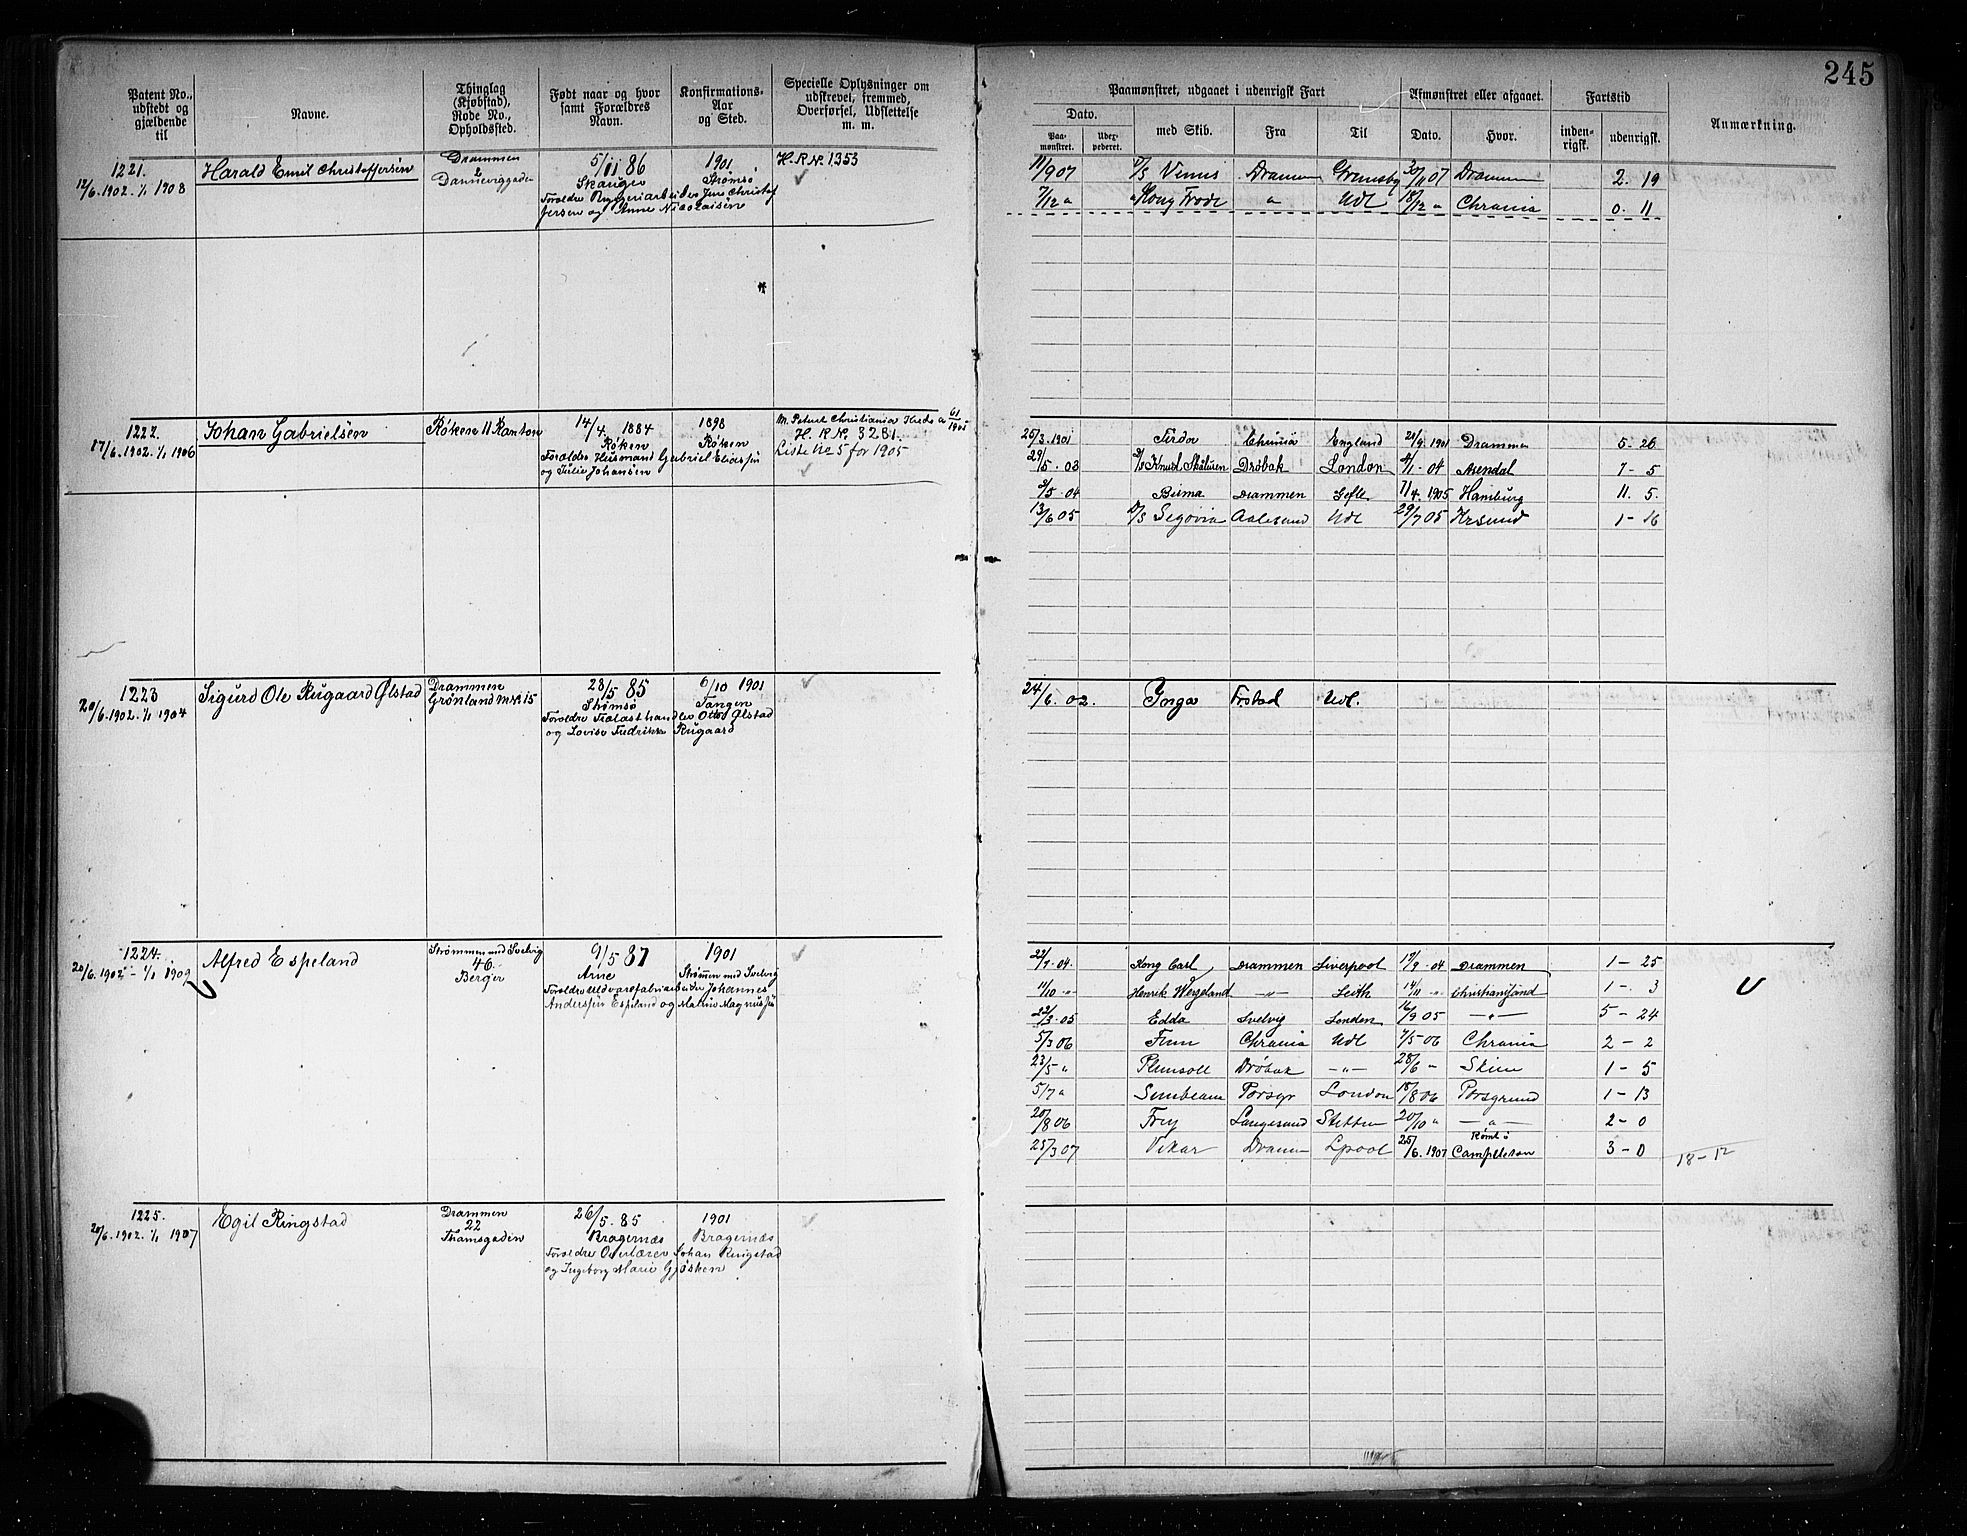 245
Patent No., udstedt og gjældende til
Navne.
Thinglag (Kjøbstad), Rode No., Opholdssted.
Født naar og hvor samt Forældres Navn.
Konfirmations-Aar og Sted.
Specielle Oplysninger om udskrevet, fremmed, Overførsel, Udslettelse m. m.
Paamønstret, udgaaet i udenrigsk Fart
Afmønstret eller afgaaet.
Fartstid
Anmærkning.
Dato.
Paa-mønstret.
med Skib.
Fra
Til
Dato.
Hvor.
inden-rigsk.
udenrigsk.
1221. Harald Emil Christoffersen Drammen 5/11 86 1901 H.R.N. 1353
12/6.1902. 1/1 1908 2 Skauger Strømsø
Forældre Byggeriarbeider Jens Christof
fersen og Anne Nicolaisen
11/9 07 D/S Venus Drammen Grimsby 30/11 07 Drammen 2. 19
7/12 " " Kong Frode " Udl 18/12 " Chrania 0. 11
1222. Johan Gabrielsen Røken 11 Kanton 14/4 1884 1898
17/6.1902. 1/1 1906 Røken Røken H. R N. 3281.
Forældre Husmand Gabriel Eliassen Liste No 5 for 1905
og Julie Johansen
25/3.1901 England 1901 Drammen 5. 26
29/5. 03 Drøbak London 04 Arendal 7 - 5
3/5. 04 Birma Drammen Gefle 7/4. 1905 Hamburg 11. 5.
13/6 05 D/S Segovia Aalesund Udl 29/7 05 Krsund 1 - 16
1223 Sigurd Ole Rugaard Ølstad Drammen 28/5 85 6/10 1901
20/6.1902. 1/1 1904 Grønland 15 Strømsø Tangen
Forældre Otto Ølstad
og Lovise Fredrikke Rugaard
24/6. 02. Inga Frstad Udl.
1224. Alfred Espeland Strømmen med Svelvig 9/5 87 1901
20/6.1902 - 1/1 1909 46 Arne Strømmen med Svelvig
Berger Forældre Uldvarefabriarbeider Johannes
Anderssen Espeland og Marie Magnussen
04. Kong Carl Drammen Liverpool 17/9. 04 Drammen 1 - 25
11/10 " Henrik Wergeland - " - Leith 14/11 " Christianssand 1 - 3
22/3. 05 Edda Svelvig London 16/9 05 - " - 5 - 24
5/3 06 Chrania Udl 7/5 06 Chrania 2 - 2
23/5 " Plimsoll Drøbak - " - 28/6 " Skien 1 - 5
5/7 " Sunbeam Porsgr London 18/8 06 Porsgrund 1 - 13
20/8 06 Frey Langesund Stettin 20/10 " - " - 2 - 0
25/3 07 Vikar Dramm Lpool 25/6. 1907 3 - 0 18 - 12
1225. Egil Ringstad Drammen 26/5. 85 1901
20/6.1902. 1/1 1907 22 Bragernæs Bragernæs
Thamsgaden Forældre Overlærer Johan Ringstad
og Ingeborg Marie Gjøsken